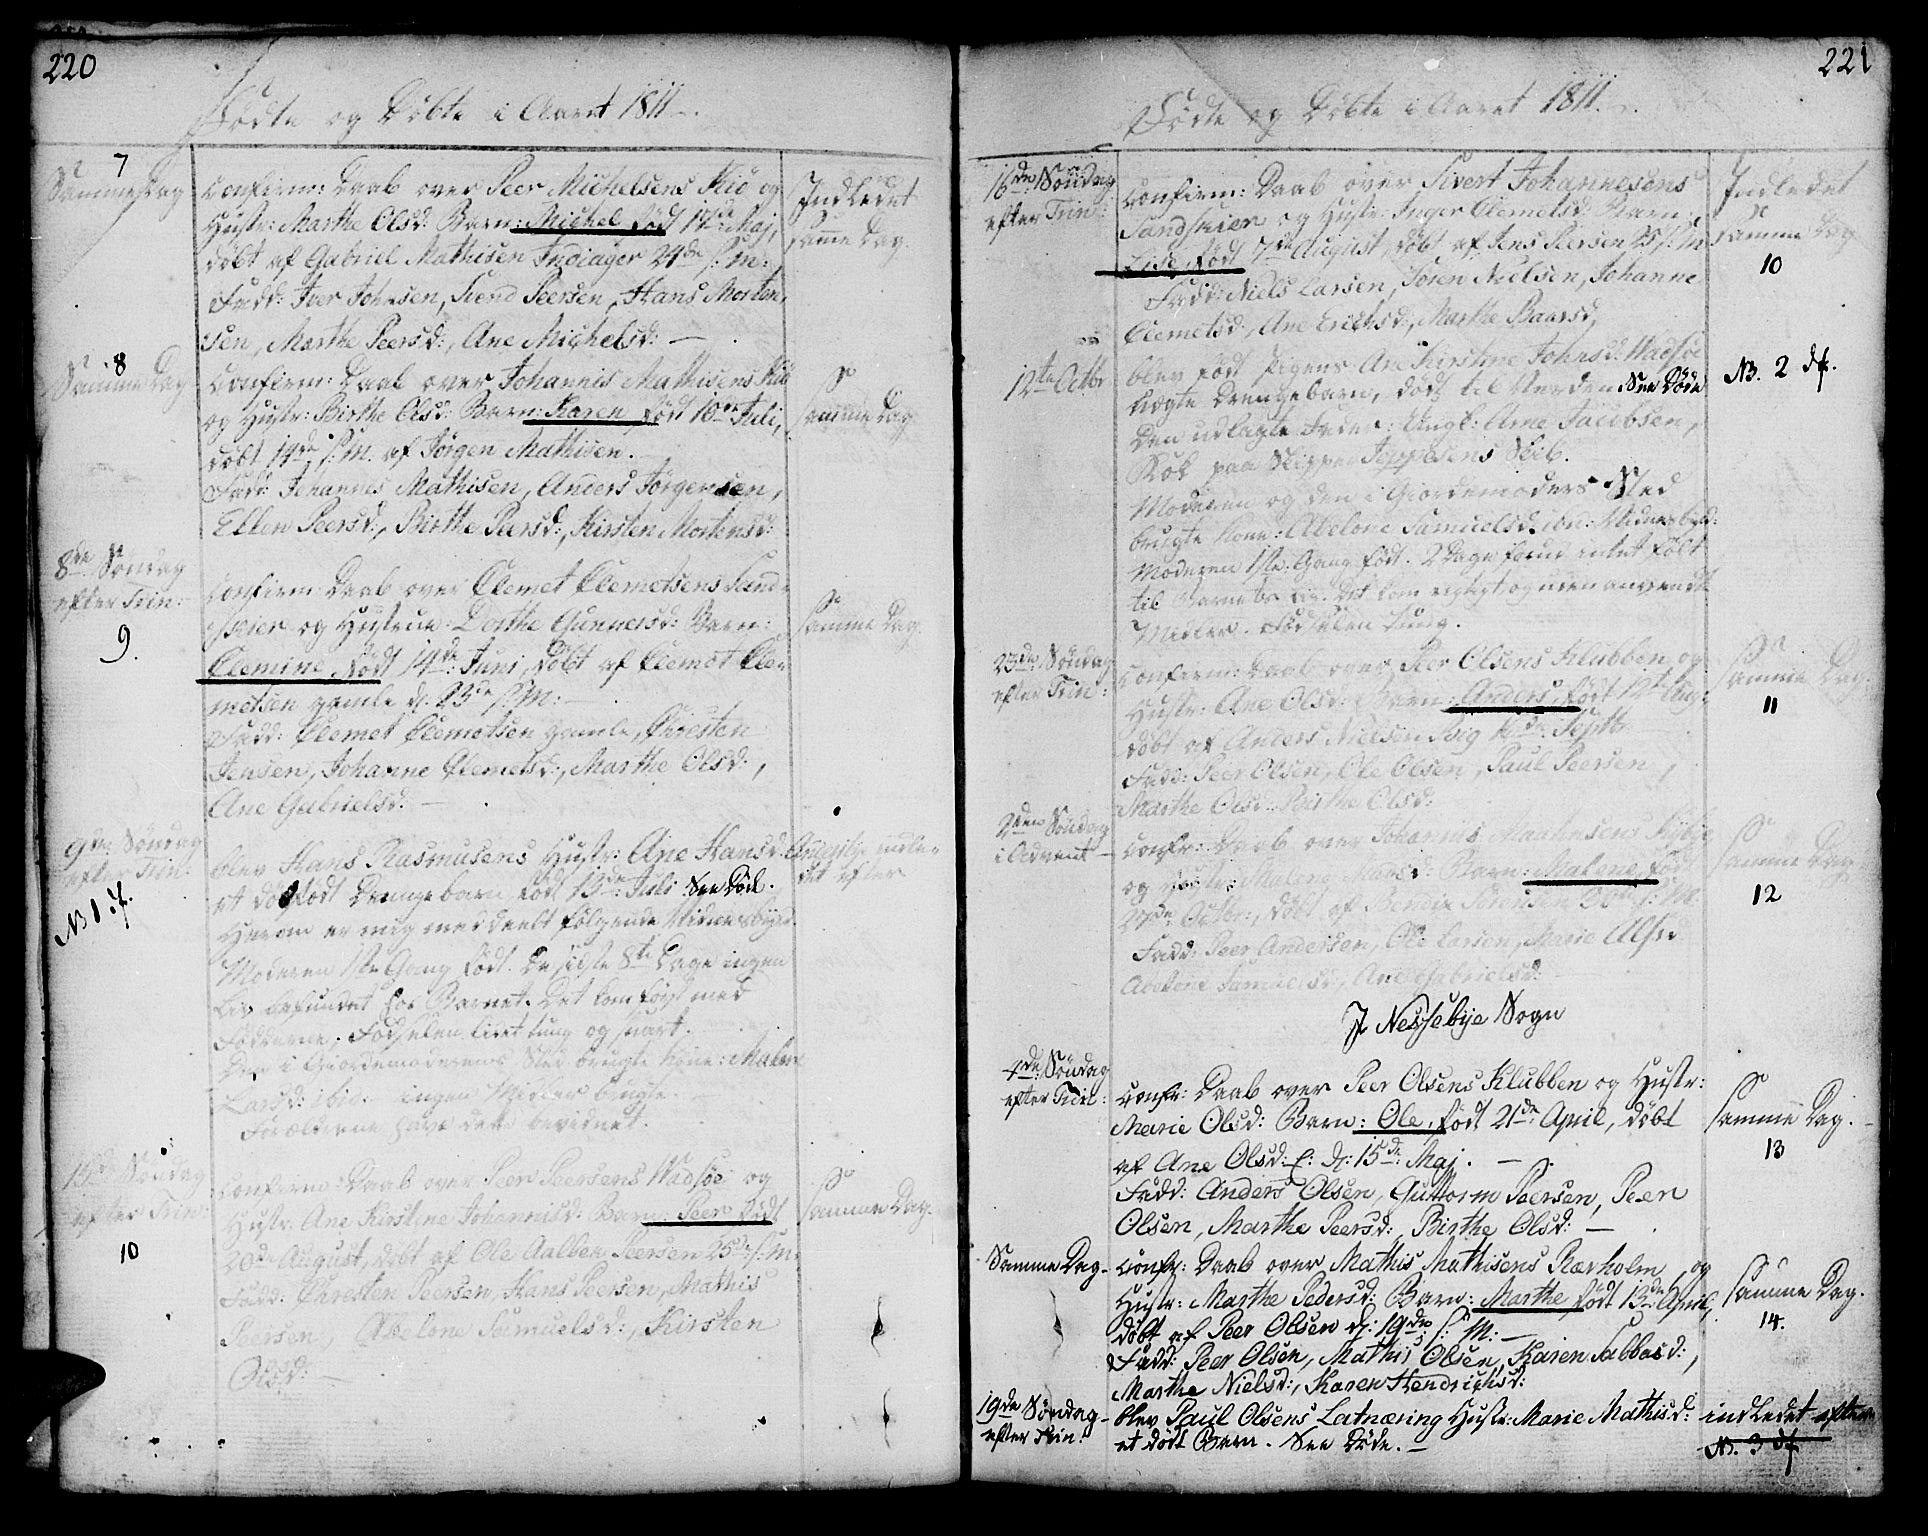 220
Födte og Döbte i Aaret 1811.
7
Samme Dag
Confirm: Daab over Peer Michelsens Kiö og
Hustr: Marthe Olsd: Barn: Michel, född 17de Maj,
döbt af Gabriel Mathisen Indiager 24de s: M:
Fadd: Iver Johnsen, Svend Peersen, Hans Morten-
sen, Marthe Peersd:, Ane Michelsd: —
Indledet
samme Dag.
8
Samme Dag
Confirm: Daab over Johannis Mathisens Kiö
og Hustr: Birthe Olsd: Barn: Karen, född 10de Juli,
döbt 14de s: M. af Jörgen Mathisen.
Fadd: Johannes Mathisen, Anders Jörgensen,
Ellen Peersd:, Birthe Peersd:, Kirsten Mortensd:
samme Dag
8de Söndag
efter Trin:
9.
Confirm: Daab over Clemet Clemetsens Sand-
skier og Hustrue Dorthe Gunnersd: Barn:
Clemine, född 14de Juni, döbt af Clemet Cle-
metsen gamle d: 23de s: M: —
Fadd: Clemet Clemetsen gamle, Christen
Jensen, Johanne Clemetsd:, Marthe Olsd:,
Ane Gabrielsd: —
samme Dag.
9de Söndag
efter Trin:
NB 1 df.
blev Hans Rasmusens Hustr: Ane Hansd:
et dödfödt Drengebarn född 13de Juli See Döde.
Herom er mig meddeelt fölgende Vidnesbyrd
Moderen 1ste Gang födt. De sidste 8te Dage ingen
Liv befundet hos Barnet. Det kom först med
Födderne. Födselen livet tung og svart.
Den i Giordemoderens Sted brugte Kone: Malene
Larsd: ibid. ingen Midler brugte. —
Forældrene have dette bevidnet.
indle-
det efter
15de Söndag
efter Trin:
10
Confirm: Daab over Peer Peersens Wadsöe og
Hustr: Ane Kirstine Johannisd: Barn: Peer född
20de August, döbt af Ole Aalben Peersen 25de s: M:
Fadd: Christen Peersen, Hans Peersen, Mathis
Peersen, Abelone Samuelsd:, Kirsten
Olsd: —
samme Dag.
221
Födte og Döbte i Aaret 1811.
16de Söndag
efter Trin:
Confirm: Daab over Sivert Johannesens
Sandskier og Hustr: Inger Clemetsd: Barn:
Lise, född 7de August, döbt af Jens Peersen 25 s: M
Fadd: Niels Larsen, Sören Nielsen, Johanne
Clemetsd:, Ane Erichsd:, Marthe Baarsd:
Indledet
samme Dag
10
12te Octbr
blev född Pigens Ane Kirstine Johnsd: Wadsöe
uægte Drengebarn, dödt til Verden See Döde
Den udlagte Fader: Ungk: Arne Jacobsen,
Kok paa Skipper Jeppesens Skib.
Moderen og den i Giordemoders Sted
brugte Kone: Abelone Samuelsd: ibid: Vidnesbyrd:
Moderen 1ste Gang födt. 2 Dage forud intet fölt
til Barnets Liv. Det kom rigtigt og uden anvendte
Midler. Födselen tung.
NB. 2 df.
23de Söndag
efter Trin:
Confirm: Daab over Peer Olsens Klubben og
Hustr: Ane Olsd: Barn: Anders, född 12te Aug:
döbt af Anders Nielsen Septbr.
Fadd: Peer Olsen, Ole Olsen, Paul Peersen,
Marthe Olsd: Birthe Olsd:
samme Dag.
11
2den Söndag
i Advent —
Confr: Daab over Johannis
og Hustr: Malene Barn: Malene, född
27de Octbr:, döbt af Bendix Sörensen 30te s: M.
Fadd: Peer Andersen, Ole Larsen, Marie Ulfsd:
Abelone Samuelsd:, Ane Gabrielsd: —
samme Dag.
12
I Nessebye Sogn
4de Söndag
efter Trin:
Confr: Daab over Peer Olsens Klubben og Hustr:
Marie Olsd: Barn: Ole, född 21de April, döbt
af Ane Olsd: d: 15de Maj. —
Fadd: Anders Olsen, Guttorm Peersen, Peer
Olsen, Marthe Peersd:, Birthe Olsd: —
samme Dag.
13
Samme Dag —
Confr: Daab over Mathis Mathisens Rærholm og
Hustr: Marthe Pedersd: Barn: Marthe, född 13de April,
döbt af Peer Olsen d: 19de s: M: —
Fadd: Peer Olsen, Mathis Olsen, Karen Sabbasd:,
Marthe Nielsd:, Karen Hendrichsd:
samme Dag.
14.
19de Söndag —
efter Trin:
blev Paul Olsens Latnæring Hustr: Marie Mathisd:
et dödt Barn. See Döde. —
indledet efter
NB. 3 df